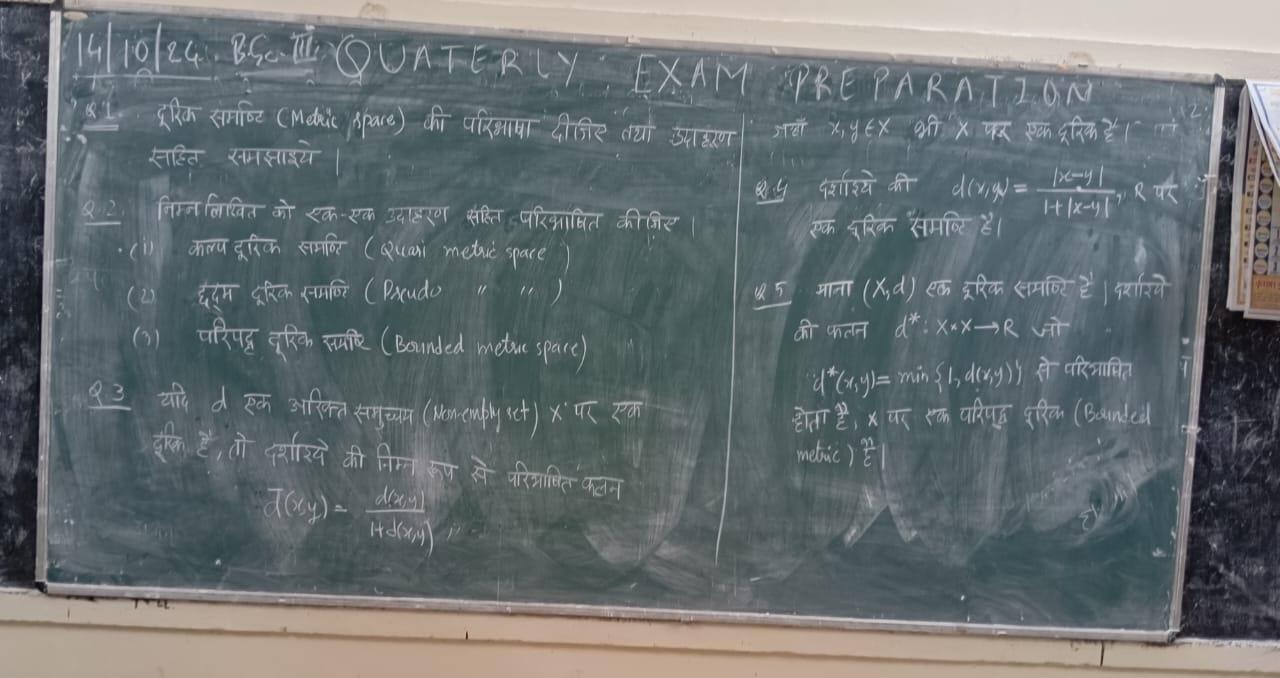 14/10/24 B.Sc-III QUATERLY EXAM PREPARATION
Q.1 दूरिक समष्टि (Metric space) की परिभाषा दीजिए तथा उदाहरण
सहित समझाइये।
Q.2 निम्नलिखित को एक-एक उदाहरण सहित परिभाषित कीजिए।
(1) कल्प दूरिक समष्टि (Quasi metric space)
(2) छद्म दूरिक समष्टि (Pseudo " ")
(3) परिबद्ध दूरिक समष्टि (Bounded metric space)
Q.3 यदि d एक अरिक्त समुच्चय (Non-empty set) X पर एक
दूरिक है, तो दर्शाइये की निम्न रूप से परिभाषित फलन
d̄(x,y) = d(x,y) / 1+d(x,y)
जहाँ x,y ∈ X भी X पर एक दूरिक है।
Q.4 दर्शाइये की d(x,y) = |x-y| / 1+|x-y|, R पर
एक दूरिक समष्टि है।
Q.5 माना (X,d) एक दूरिक समष्टि है। दर्शाइये
की फलन d*: X×X→R जो
d*(x,y) = min{1, d(x,y)} से परिभाषित
होता है, X पर एक परिबद्ध दूरिक (Bounded
metric) है।